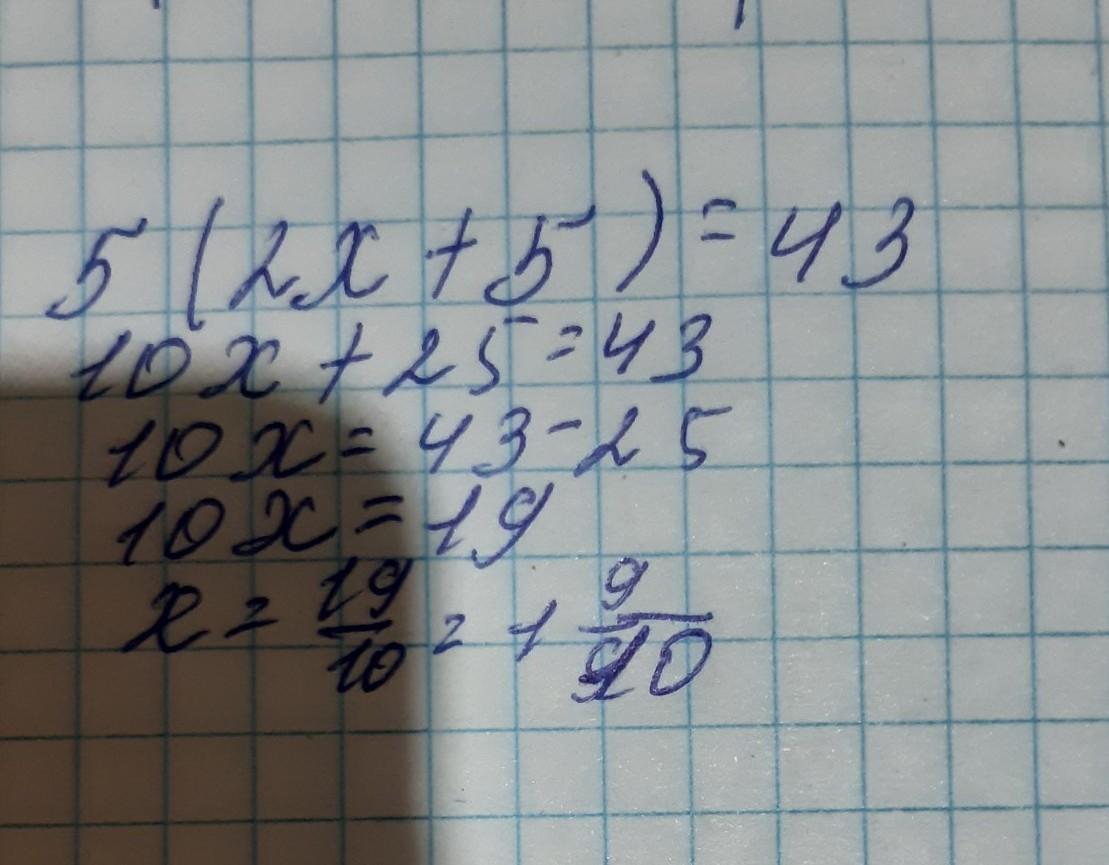 5(2x+5)=43
10x+25=43
10x=43-25
10x=19
x=19/10=1 9/10